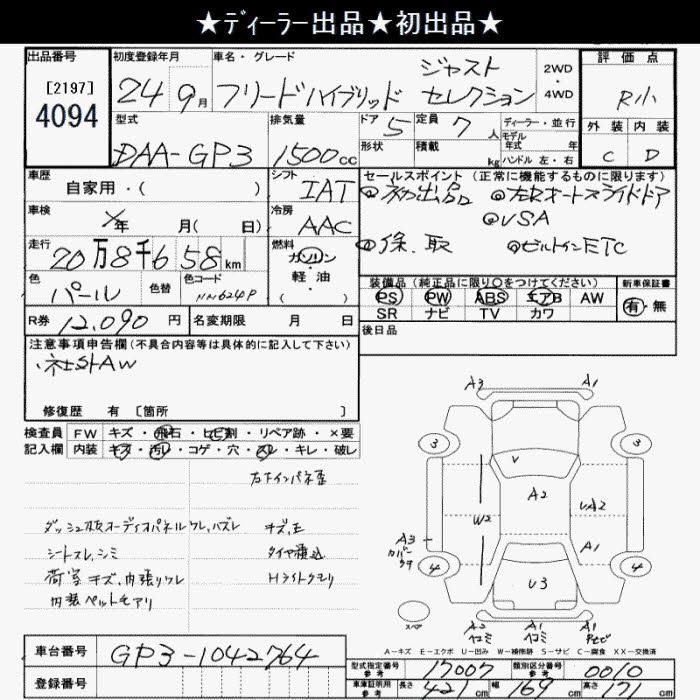 ★ディーラー出品★初出品★
出品番号
[2197]
4094
初度登録年月
24年9月
車名・グレード
フリードハイブリッド
ジャスト
セレクション
2WD
・
4WD
評価点
R小
型式
DAA-GP3
排気量
1500cc
ドア
5
定員
7人
ディーラー・並行
モデル
年式 年
形状
積載
kg
ハンドル 左・右
外装
内装
C
D
車歴
自家用・( )
シフト
IAT
セールスポイント (正常に機能するものに限ります)
◎初出品 ◎左右オートスライドドア
◎VSA
◎保、取 ◎ビルトインETC
車検
年 月( 日)
冷房
AAC
走行
20万8千658km
燃料
ガソリン
軽・油
( )
色
パール
色替
色コード
NH624P
装備品 (純正品に限り○をつけてください)
PS PW ABS エアB AW
SR ナビ TV カワ
新車保証書
有・無
R券
12,090円
名変期限 月 日
後日品
注意事項申告欄 (不具合内容等は具体的に記入して下さい)
社外AW
修復歴 有 [箇所 ]
検査員
記入欄
FW キズ・飛石・ヒビ割・リペア跡・×要
内装 キズ・汚レ・コゲ・穴・スレ・キレ・破レ
右下インパネ歪
ダッシュ板オーディオパネルワレ、ハズレ
キズ、エ
シートスレ、シミ
タイヤ積込
荷室キズ、内張りワレ
Hライトクモリ
内装ペットモアリ
A3 A1
3 3
V
A2
W2
UA2
A3
カバー
ワレ
A1
4 4
U3
スペア
A2 A1 A1
A-キズ E-エクボ U-凹み W-補修跡 S-サビ C-腐食 XX-交換済
車台番号
GP3-1042764
登録番号
型式指定番号
参考
17007
類別区分番号
参考
0010
車庫証明用
参考
長さ 421cm 幅 169cm 高さ 171cm